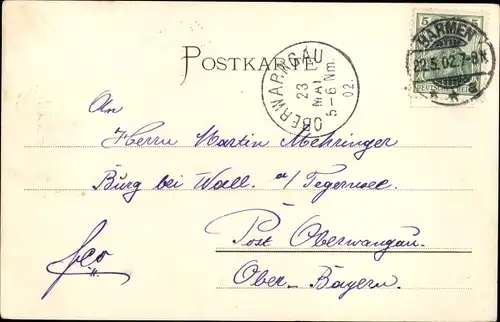 POSTKARTE
OBERWARNGAU
23
MAI
5-6 Nm.
02.
5 5
BARMEN
22.5.02.7-8N
* k
An
Herrn Martin Mehringer
Burg bei Wall. a/Tegernsee.
Post Oberwangau.
Ober-Bayern.
fco